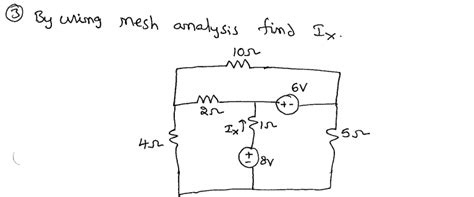 ③ By using mesh analysis find Ix.
10Ω
6V
+ -
2Ω
Ix↑ 1Ω
4Ω
5Ω
+
- 8V